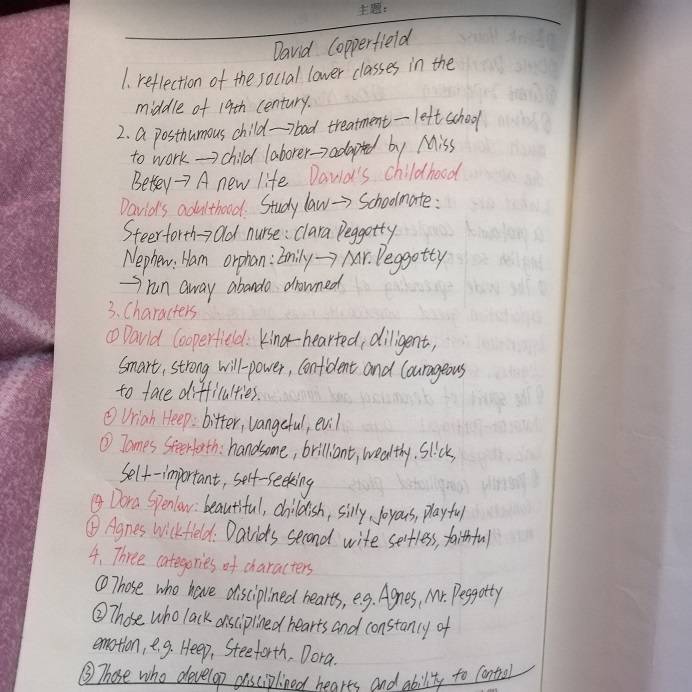 主题:
David Copperfield
1. reflection of the social lower classes in the
middle of 19th century.
2. a posthumous child→bad treatment—left school
to work → child laborer→adapted by Miss
Betsey→ A new life David's childhood
David's adulthood: Study law→ Schoolmate:
Steerforth→Old nurse: Clara Peggotty
Nephew: Ham orphan: Emily→ Mr. Peggotty
→ run away abando drowned
3. Characters
① David Cooperfield: kind-hearted, diligent,
smart, strong will-power, confident and courageous
to face difficulties.
② Uriah Heep: bitter, vangeful, evil
③ James Steerforth: handsome, brilliant, wealthy, slick,
self-important, self-seeking
④ Dora Spenlow: beautiful, childish, silly, joyous, playful
⑤ Agnes Wickfield: David's second wife selfless, faithful
4. Three categories of characters
①Those who have disciplined hearts, e.g. Agnes, Mr. Peggotty
②Those who lack disciplined hearts and constancy of
emotion, e.g. Heep, Steeforth, Dora.
③Those who develop disciplined hearts and ability to control